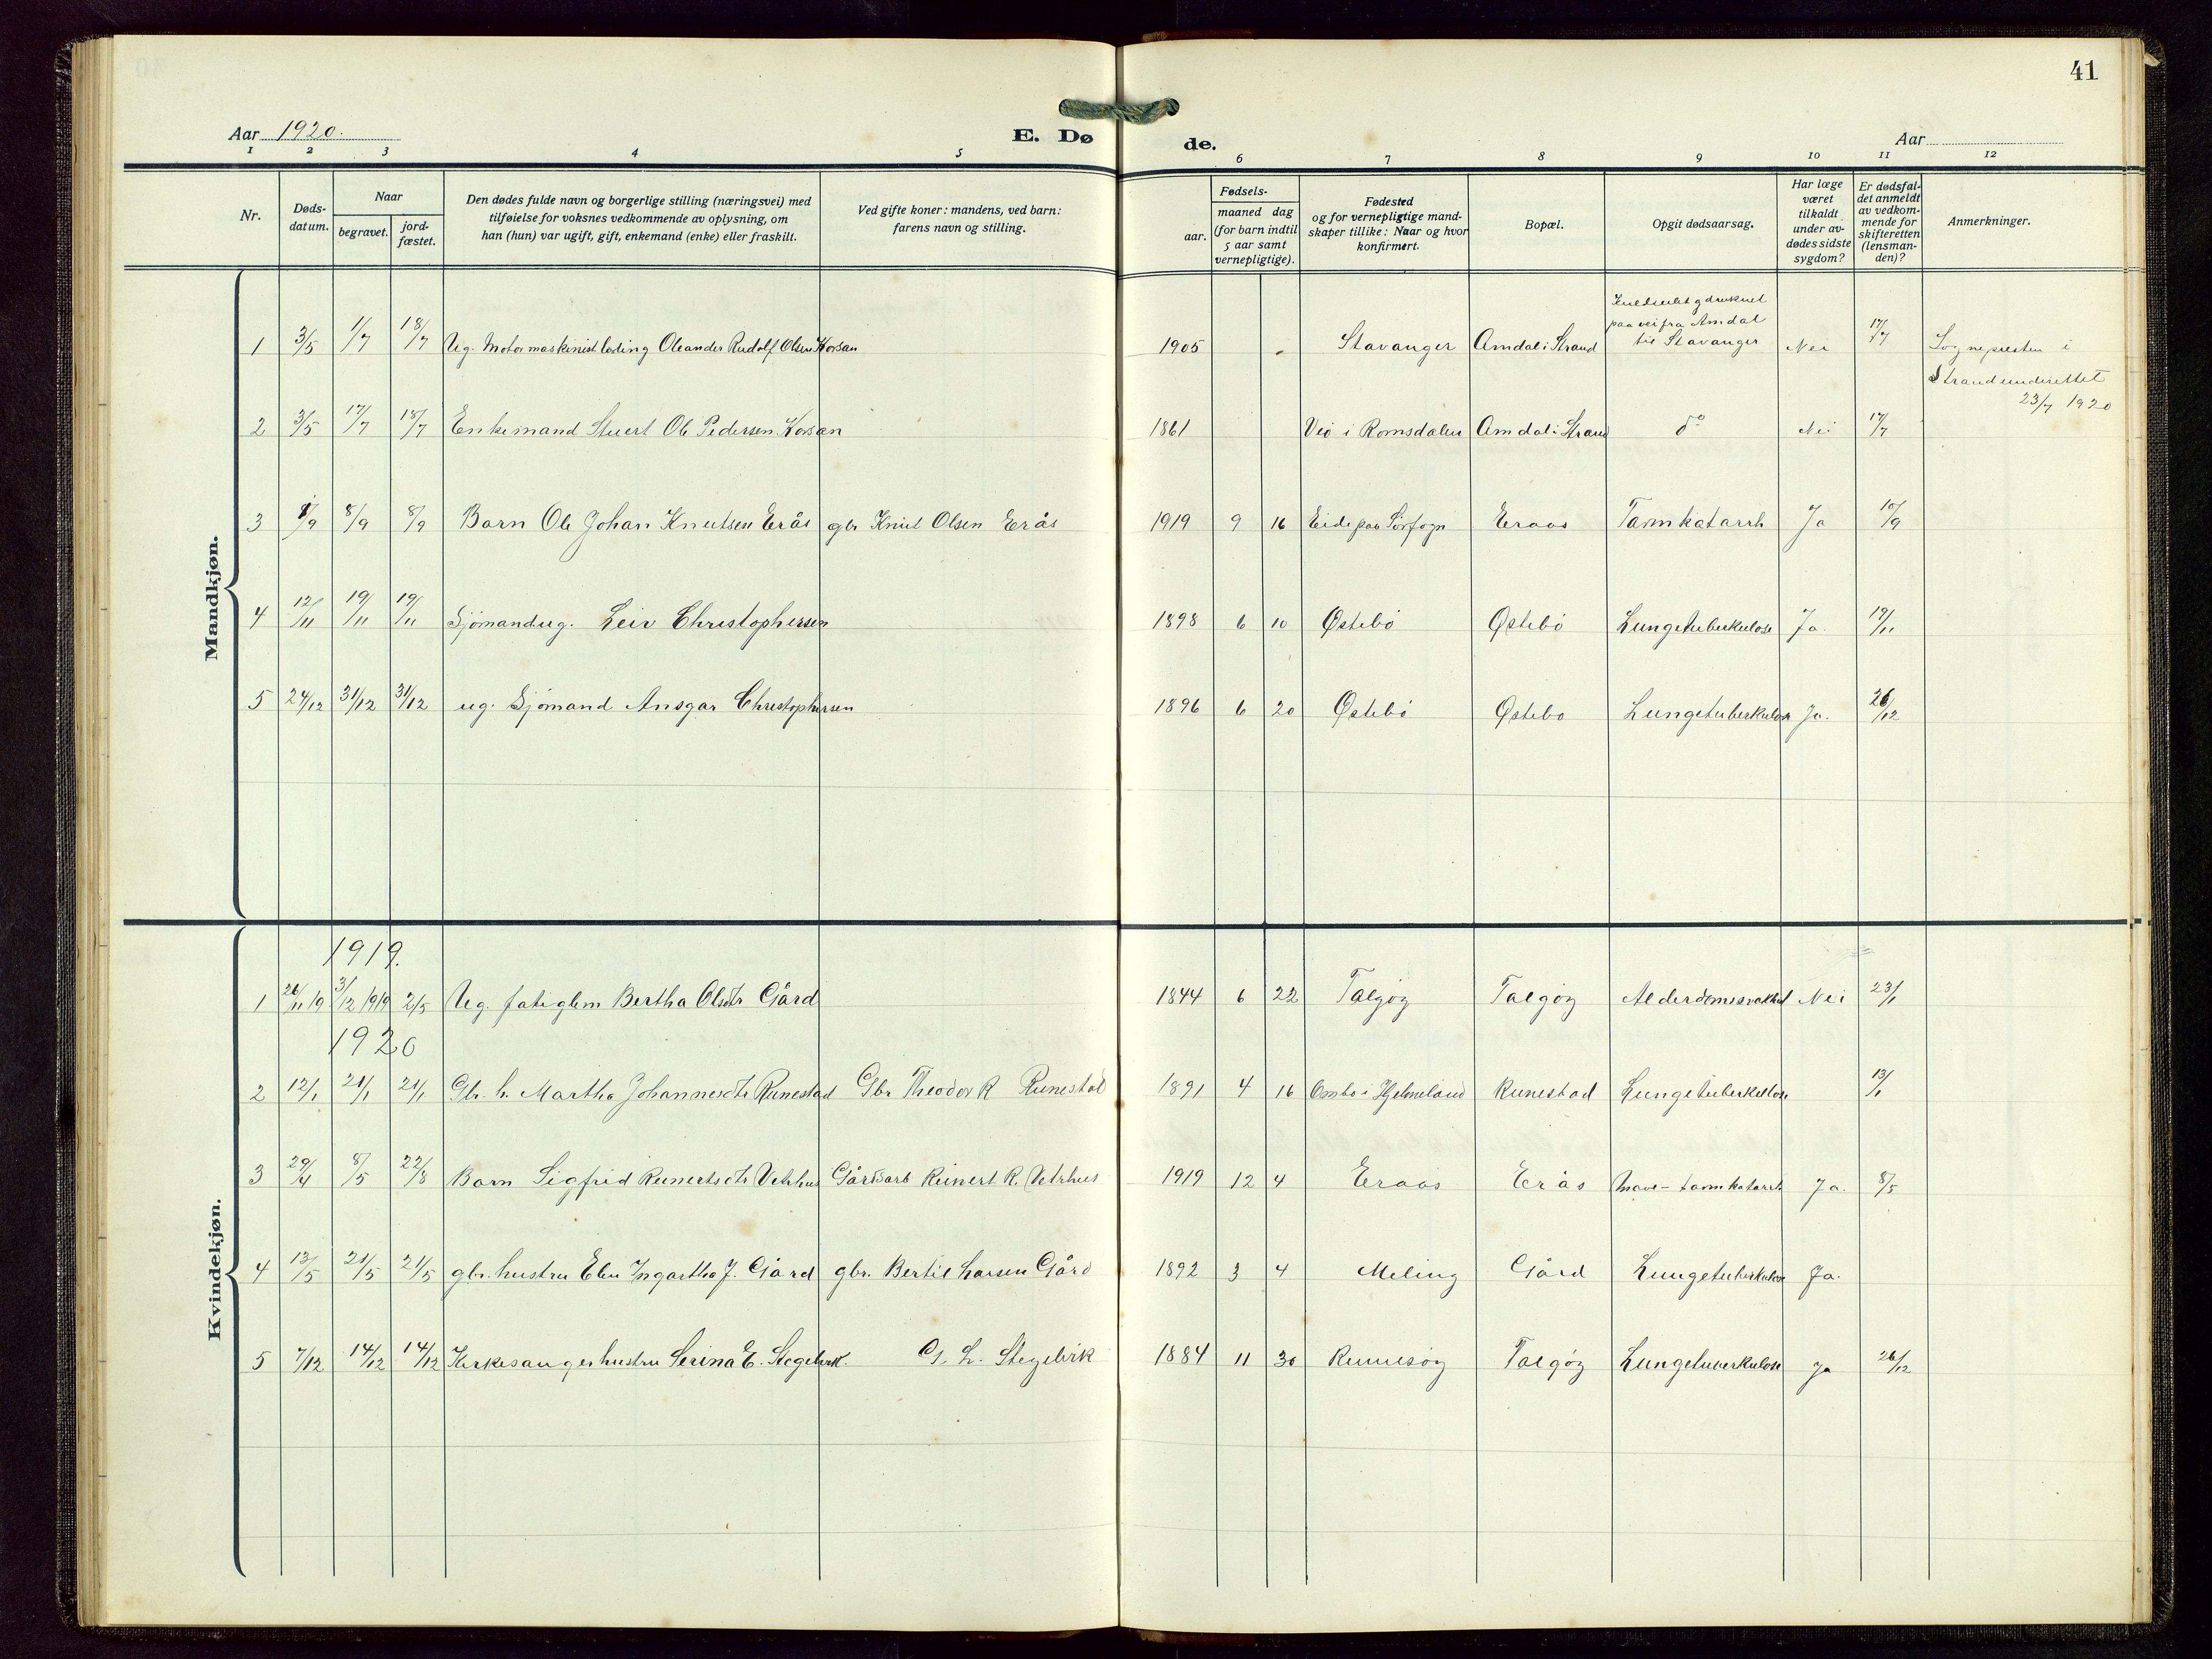 41
Aar 1920.
E. Dø de.
Aar
1 2 3 4 5 6 7 8 9 10 11 12
Nr.
Døds-datum.
Naar
begravet.
jord-fæstet.
Den dødes fulde navn og borgerlige stilling (næringsvei) med
tilføielse for voksnes vedkommende av oplysning, om
han (hun) var ugift, gift, enkemand (enke) eller fraskilt.
Ved gifte koner: mandens, ved barn:
farens navn og stilling.
Fødsels-
aar.
maaned dag
(for barn indtil
5 aar samt
vernepligtige).
Fødested
og for vernepligtige mand-
skaper tillike: Naar og hvor
konfirmert.
Bopæl.
Opgit dødsaarsag.
Har læge
været
tilkaldt
under av-
dødes sidste
sygdom?
Er dødsfal-
det anmeldt
av vedkom-
mende for
skifteretten
(lensman-
den)?
Anmerkninger.
Mandkjøn.
1 3/5 1/7 18/7 Ug. Motormaskinist Oleander Rudolf Olsen Korsan 1905 Stavanger Amdal i Strand Kuldseilet og druknet paa vei fra Amdal til Stavanger Nei 17/7 Sognepresten i
Strand underettet
23/7 1920
2 3/5 17/7 18/7 Enkemand Stuert Ole Pedersen Korsan 1861 Veö i Romsdalen Amdal i Strand do Nei 17/7
3 1/9 8/9 8/9 Barn Ole Johan Knutsen Erås gbr Knut Olsen Erås 1919 9 16 Eide paa Sörfogn Eraas Tarmkatarrh Ja 10/9
4 12/11 19/11 19/11 Sjömand ug. Leiv Christophersen 1898 6 10 Østebö Østebö Lungetuberkulose Ja. 19/11
5 24/12 31/12 31/12 ug. Sjömand Ansgar Christophersen 1896 6 20 Østebö Østebö Lungetuberkulose Ja. 26/12
Kvindekjøn.
1919.
1 26/11 19 3/12 1919 2/5 Ug. fatiglem Bertha Olsdtr Gård 1844 6 22 Talgöy Talgöy Alderdomssvakhet Nei 23/1
1920
2 12/1 21/1 21/1 Gbr. h. Martha Johannesdtr Runestad Gbr Theodor R Runestad 1891 4 16 Ombo i Hjelmeland Runestad Lungetuberkulose 13/1
3 29/4 8/5 22/8 Barn Sigfrid Reinertsdtr Vetrhus Gårdsarb Reinert R. Vetrhus 1919 12 4 Eraas Erås Mave-tarmkatarrh Ja. 8/5
4 13/5 21/5 21/5 gbr. hustru Elen Ingartha J. Gård gbr. Bertil Larsen Gård 1892 3 4 Meling Gård Lungetuberkulose Ja.
5 7/12 14/12 14/12 Kirkesangerhustru Serina E. Stegelvik. G. L. Stegelvik 1884 11 30 Rennesöy Talgöy Lungetuberkulose Ja 26/12